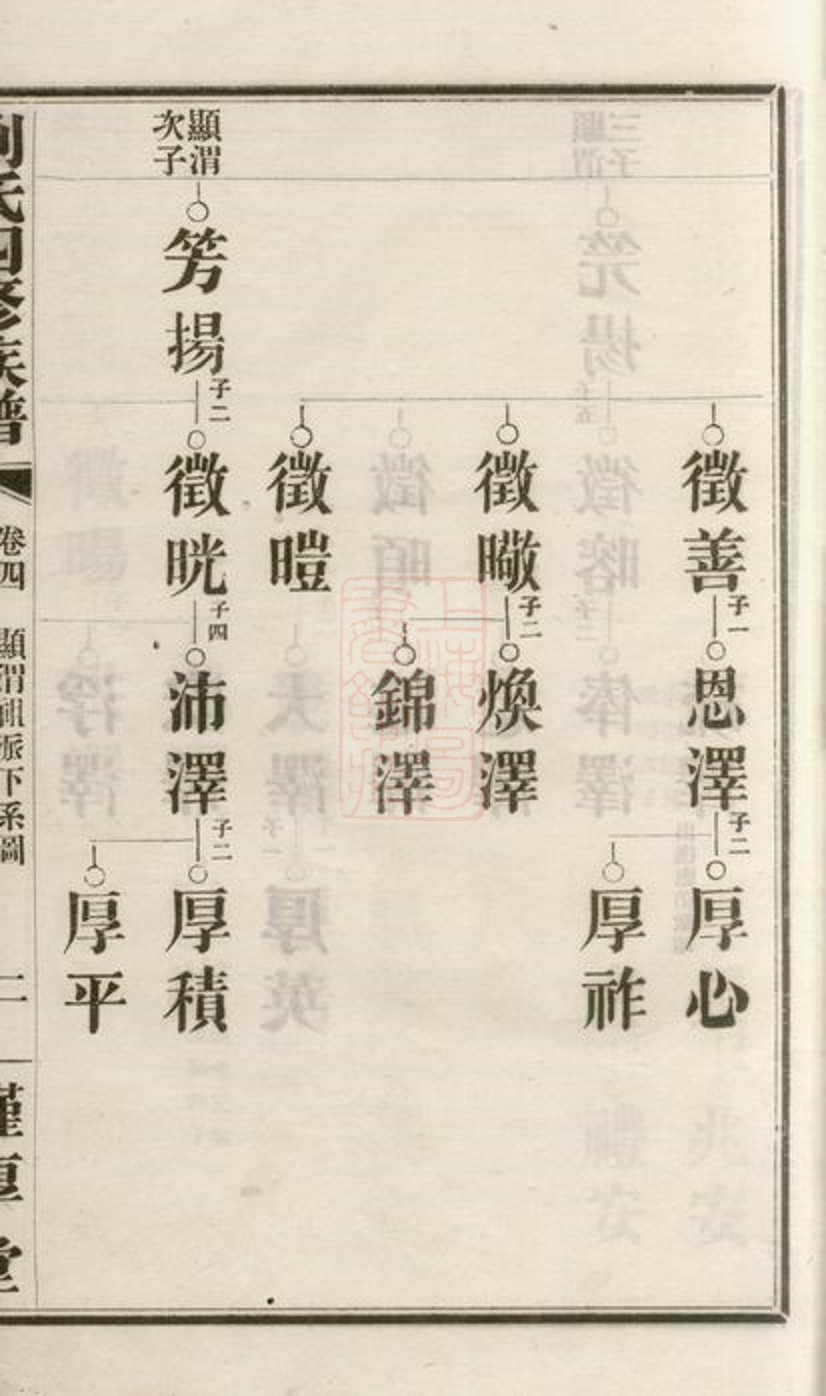 徵善
子一
恩澤
子二
厚心
厚祚
徵暾
子二
煥澤
錦澤
徵暟
顯渭
次子
芳揚
子二
徵晄
子四
沛澤
子二
厚積
厚平
劉氏四修族譜
卷四
顯渭祖派下系圖
二
堂